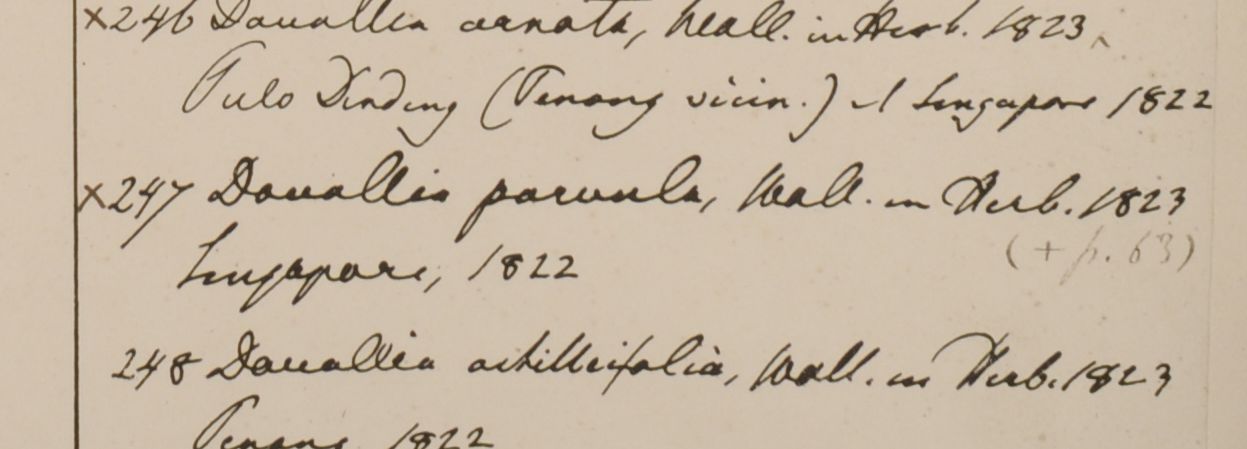 ×246 Davallia ornata, Wall. in Herb. 1823
Pulo Dinding (Penang vicin.) et Singapore 1822
×247 Davallia parvula, Wall. in Herb. 1823
(+ p. 63)
Singapore, 1822
248 Davallia achilleifolia, Wall. in Herb. 1823
Penang 1822